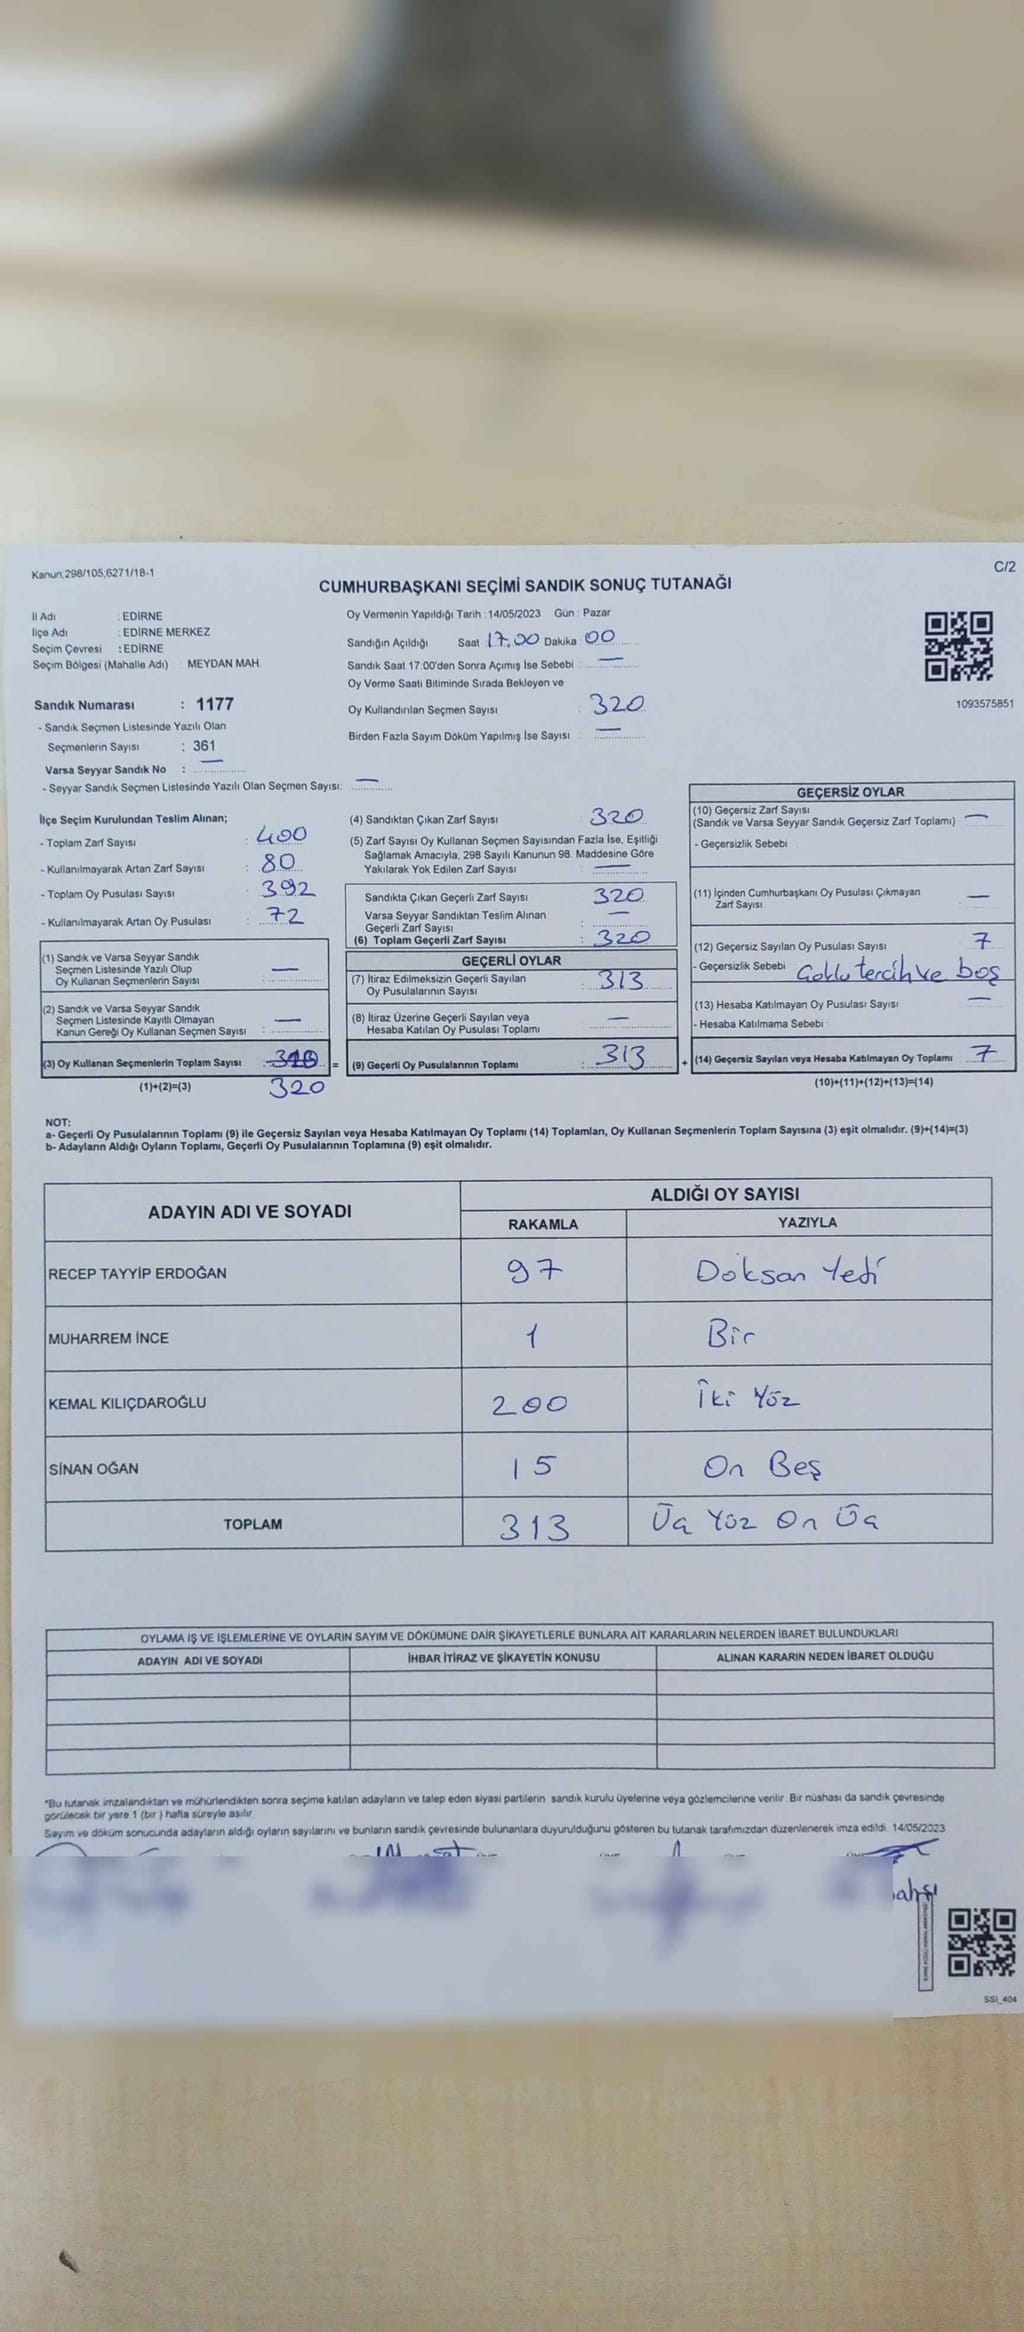 Kanun;298/105;6271/18-1
C/2
CUMHURBAŞKANI SEÇİMİ SANDIK SONUÇ TUTANAĞI
İl Adı : EDİRNE
İlçe Adı : EDİRNE MERKEZ
Seçim Çevresi : EDİRNE
Seçim Bölgesi (Mahalle Adı) : MEYDAN MAH.
Oy Vermenin Yapıldığı Tarih : 14/05/2023 Gün : Pazar
Sandığın Açıldığı Saat 17,00 Dakika 00
Sandık Saat 17:00'den Sonra Açımış İse Sebebi : —
Oy Verme Saati Bitiminde Sırada Bekleyen ve
Oy Kullandırılan Seçmen Sayısı : 320
Birden Fazla Sayım Döküm Yapılmış İse Sayısı : —
1093575851
Sandık Numarası : 1177
- Sandık Seçmen Listesinde Yazılı Olan
Seçmenlerin Sayısı : 361
Varsa Seyyar Sandık No : —
- Seyyar Sandık Seçmen Listesinde Yazılı Olan Seçmen Sayısı: —
İlçe Seçim Kurulundan Teslim Alınan;
- Toplam Zarf Sayısı : 400
- Kullanılmayarak Artan Zarf Sayısı : 80
- Toplam Oy Pusulası Sayısı : 392
- Kullanılmayarak Artan Oy Pusulası : 72
(1) Sandık ve Varsa Seyyar Sandık
Seçmen Listesinde Yazılı Olup
Oy Kullanan Seçmenlerin Sayısı : —
(2) Sandık ve Varsa Seyyar Sandık
Seçmen Listesinde Kayıtlı Olmayan
Kanun Gereği Oy Kullanan Seçmen Sayısı : —
(3) Oy Kullanan Seçmenlerin Toplam Sayısı : =
(1)+(2)=(3) 320
(4) Sandıktan Çıkan Zarf Sayısı : 320
(5) Zarf Sayısı Oy Kullanan Seçmen Sayısından Fazla İse, Eşitliği
Sağlamak Amacıyla; 298 Sayılı Kanunun 98. Maddesine Göre
Yakılarak Yok Edilen Zarf Sayısı : —
Sandıkta Çıkan Geçerli Zarf Sayısı : 320
Varsa Seyyar Sandıktan Teslim Alınan
Geçerli Zarf Sayısı : —
(6) Toplam Geçerli Zarf Sayısı : 320
GEÇERLİ OYLAR
(7) İtiraz Edilmeksizin Geçerli Sayılan
Oy Pusulalarının Sayısı : 313
(8) İtiraz Üzerine Geçerli Sayılan veya
Hesaba Katılan Oy Pusulası Toplamı : —
(9) Geçerli Oy Pusulalarının Toplamı : 313 +
GEÇERSİZ OYLAR
(10) Geçersiz Zarf Sayısı
(Sandık ve Varsa Seyyar Sandık Geçersiz Zarf Toplamı) —
- Geçersizlik Sebebi
(11) İçinden Cumhurbaşkanı Oy Pusulası Çıkmayan
Zarf Sayısı —
(12) Geçersiz Sayılan Oy Pusulası Sayısı 7
- Geçersizlik Sebebi Çoklu tercih ve boş
(13) Hesaba Katılmayan Oy Pusulası Sayısı —
- Hesaba Katılmama Sebebi :
(14) Geçersiz Sayılan veya Hesaba Katılmayan Oy Toplamı 7
(10)+(11)+(12)+(13)=(14)
NOT:
a- Geçerli Oy Pusulalarının Toplamı (9) ile Geçersiz Sayılan veya Hesaba Katılmayan Oy Toplamı (14) Toplamları, Oy Kullanan Seçmenlerin Toplam Sayısına (3) eşit olmalıdır. (9)+(14)=(3)
b- Adayların Aldığı Oyların Toplamı, Geçerli Oy Pusulalarının Toplamına (9) eşit olmalıdır.
ADAYIN ADI VE SOYADI
ALDIĞI OY SAYISI
RAKAMLA YAZIYLA
RECEP TAYYİP ERDOĞAN 97 Doksan Yedi
MUHARREM İNCE 1 Bir
KEMAL KILIÇDAROĞLU 200 İki Yüz
SİNAN OĞAN 15 On Beş
TOPLAM 313 Üç Yüz On Üç
OYLAMA İŞ VE İŞLEMLERİNE VE OYLARIN SAYIM VE DÖKÜMÜNE DAİR ŞİKAYETLERLE BUNLARA AİT KARARLARIN NELERDEN İBARET BULUNDUKLARI
ADAYIN ADI VE SOYADI İHBAR İTİRAZ VE ŞİKAYETİN KONUSU ALINAN KARARIN NEDEN İBARET OLDUĞU
*Bu tutanak imzalandıktan ve mühürlendikten sonra seçime katılan adayların ve talep eden siyasi partilerin sandık kurulu üyelerine veya gözlemcilerine verilir. Bir nüshası da sandık çevresinde
görülecek bir yere 1 (bir ) hafta süreyle asılır.
Sayım ve döküm sonucunda adayların aldığı oyların sayılarını ve bunların sandık çevresinde bulunanlara duyurulduğunu gösteren bu tutanak tarafımızdan düzenlenerek imza edildi. 14/05/2023
SSI_404